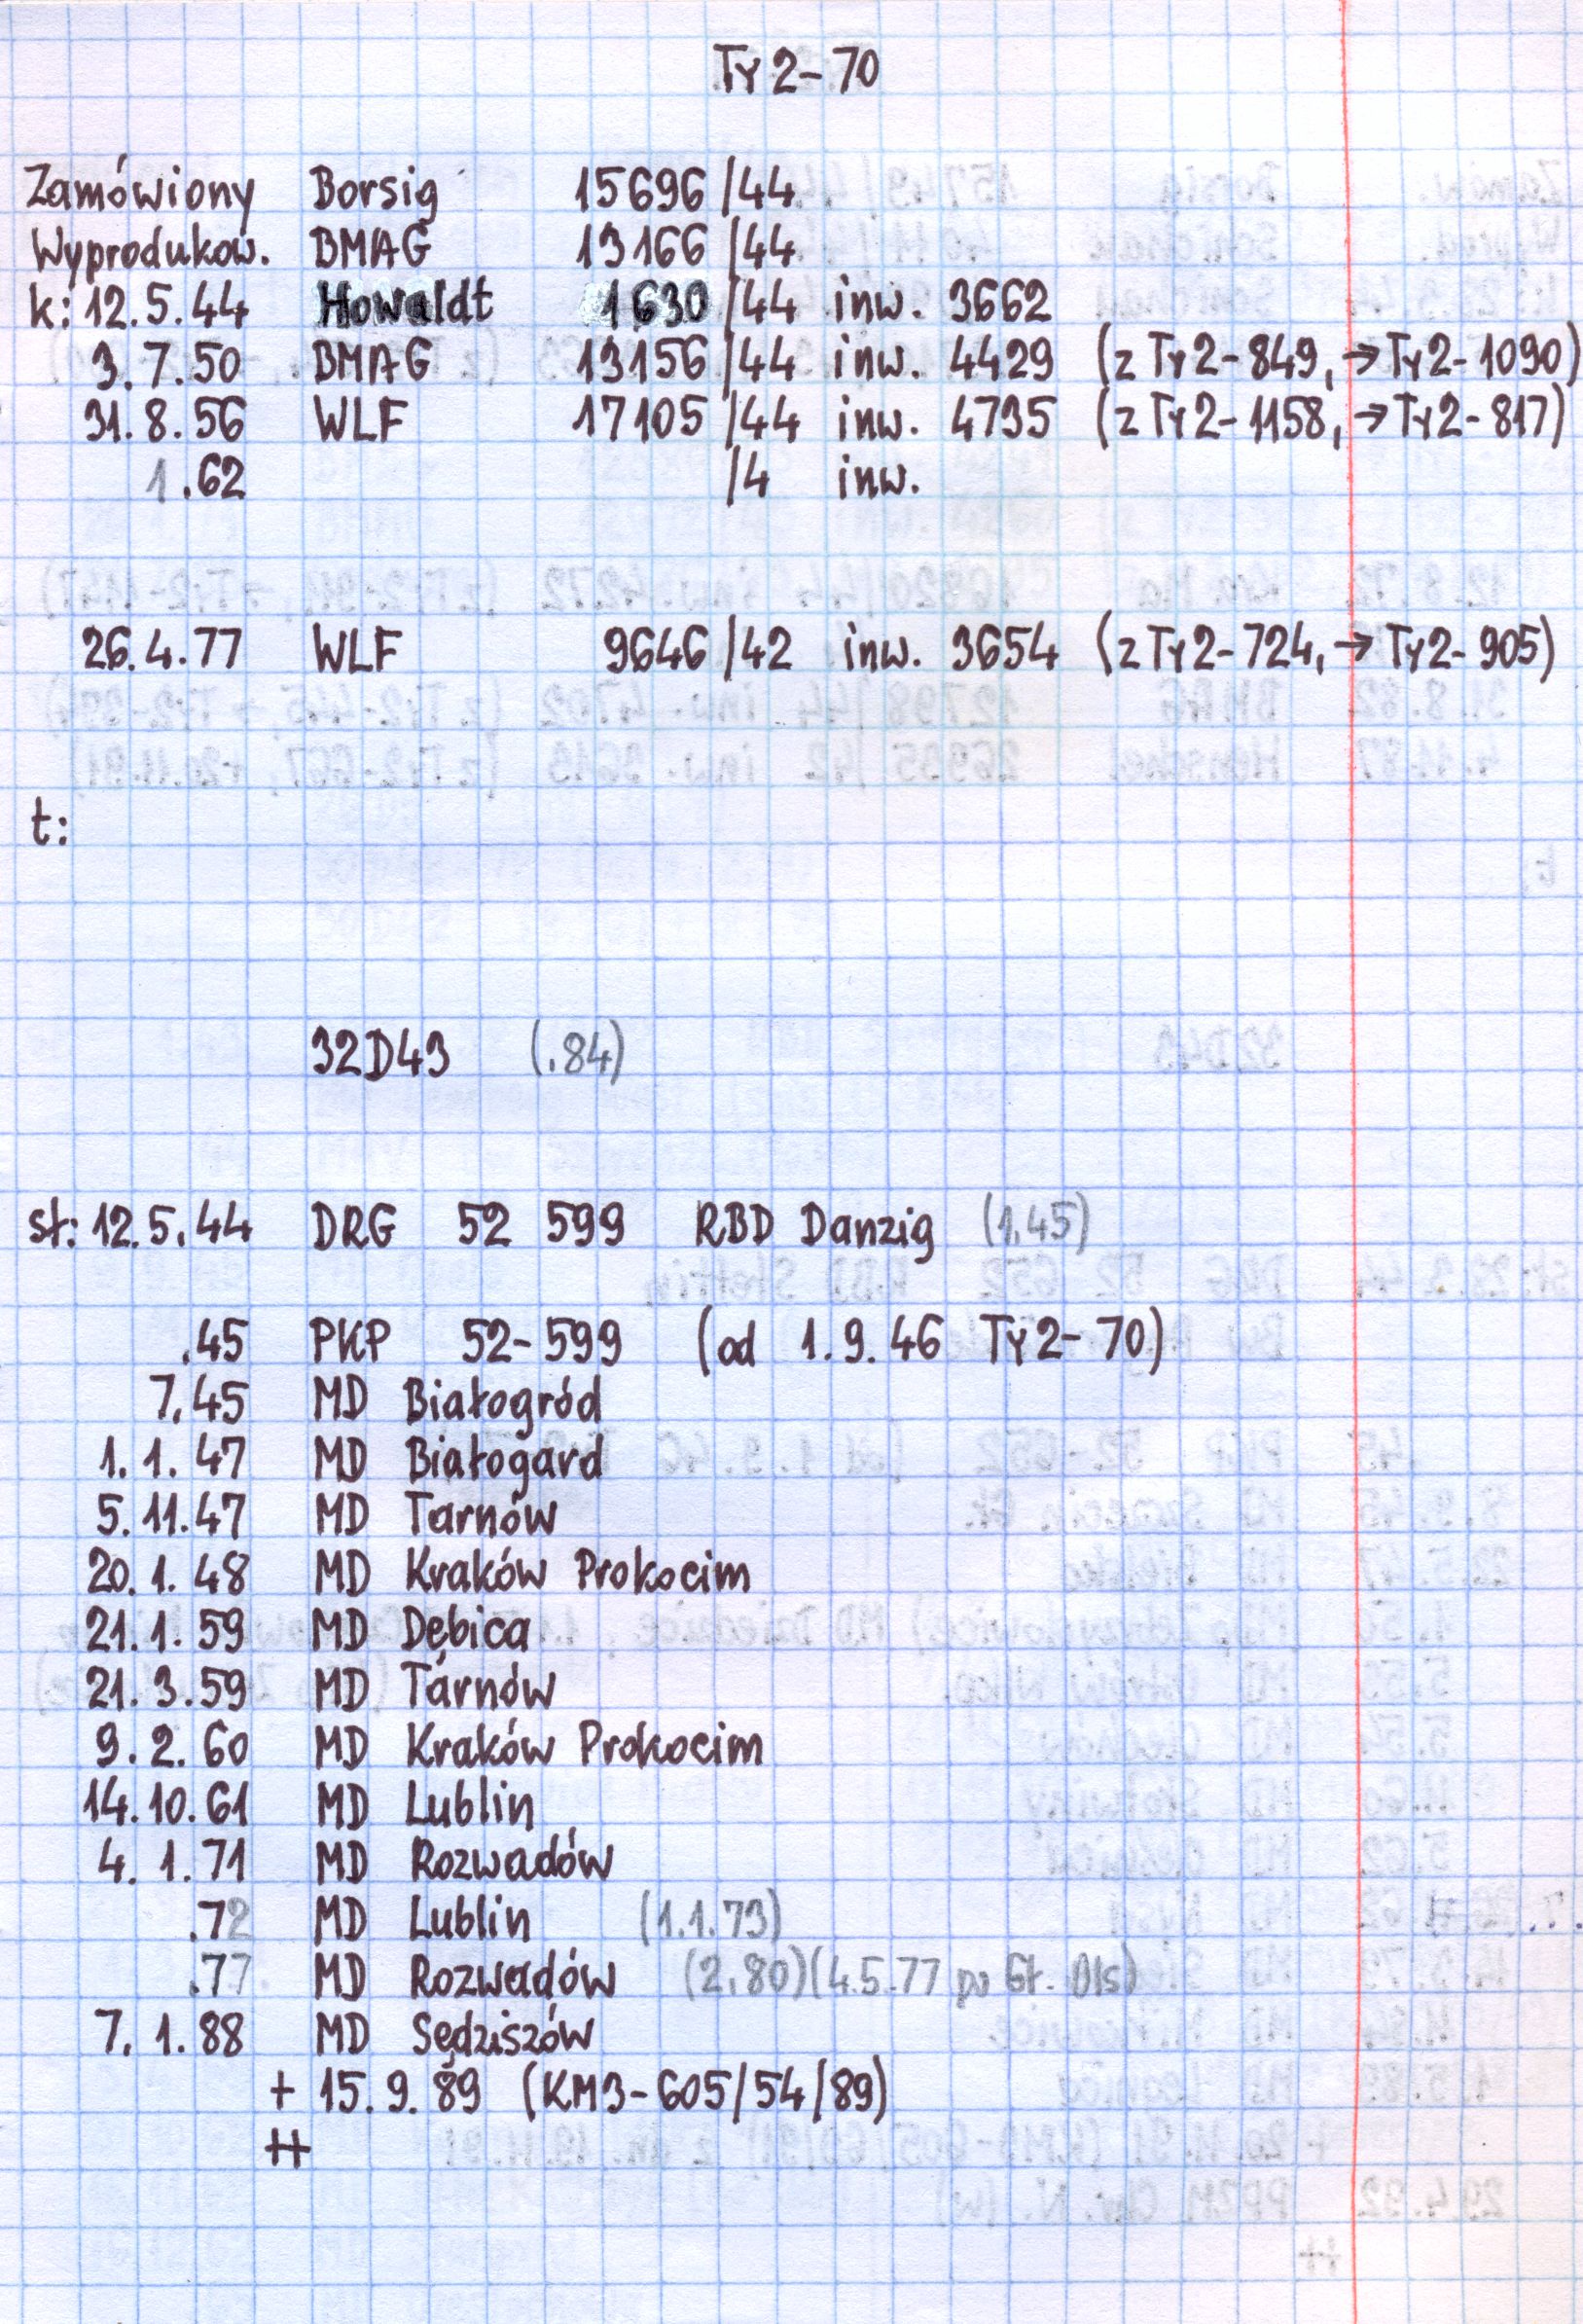 Ty2-70
Zamówiony Borsig 15696/44
Wyprodukow. BMAG 13166/44
k: 12.5.44 Howaldt 1630/44 inw. 3662
3.7.50 BMAG 13156/44 inw. 4429 (z Ty2-849, → Ty2-1090)
31.8.56 WLF 17105/44 inw. 4735 (z Ty2-1158, → Ty2-817)
1.62 /4 inw.
26.4.77 WLF 9646/42 inw. 3654 (z Ty2-724, → Ty2-905)
t:
32D43 (.84)
st: 12.5.44 DRG 52 599 RBD Danzig (1.45)
.45 PKP 52-599 (od 1.9.46 Ty2-70)
7.45 MD Białogród
1.1.47 MD Białogard
5.11.47 MD Tarnów
20.1.48 MD Kraków Prokocim
21.1.59 MD Dębica
21.3.59 MD Tarnów
9.2.60 MD Kraków Prokocim
14.10.61 MD Lublin
4.1.71 MD Rozwadów
.72 MD Lublin (1.1.73)
.77 MD Rozwadów (2.80)(4.5.77 po Gł. Ols)
7.1.88 MD Sędziszów
+ 15.9.89 (KM3-605/54/89)
++